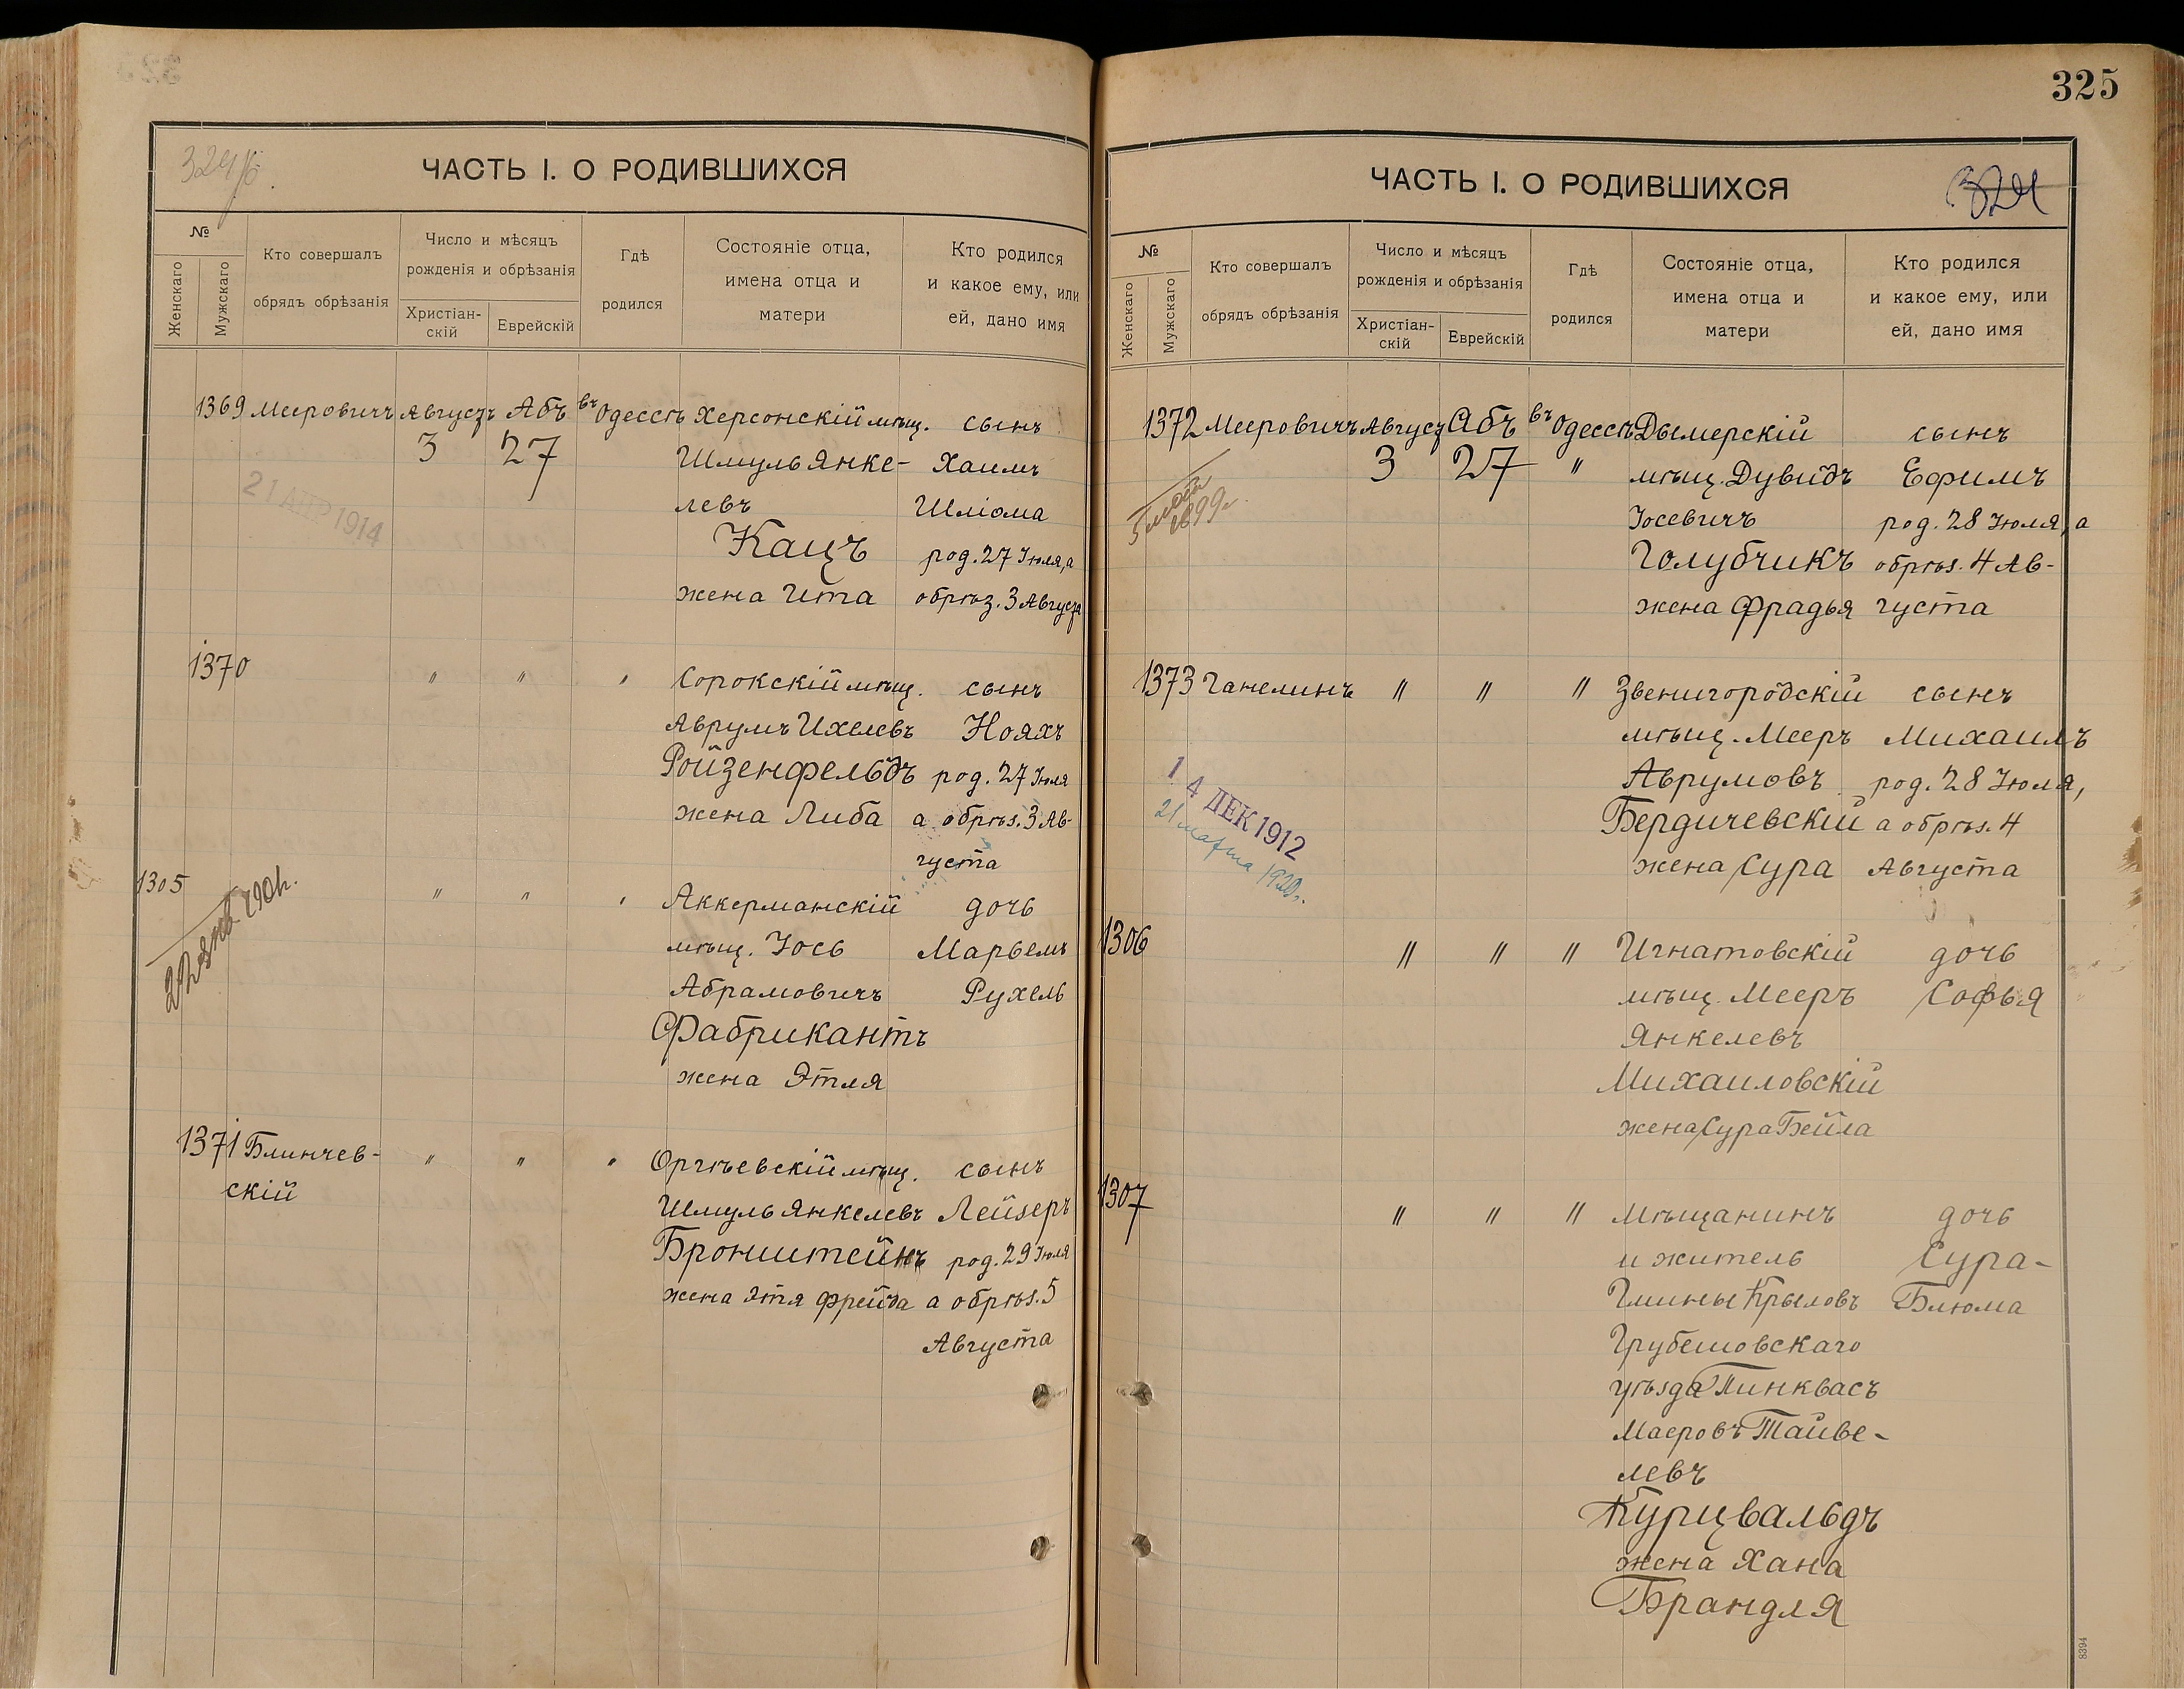 325
324/б.
ЧАСТЬ I. О РОДИВШИХСЯ
№
Женскаго
Мужскаго
Кто совершалъ
обрядъ обрѣзанія
Число и мѣсяцъ
рожденія и обрѣзанія
Христіан-
скій
Еврейскій
Гдѣ
родился
Состояніе отца,
имена отца и
матери
Кто родился
и какое ему, или
ей, дано имя
1369 Мееровичъ Августъ Абъ въ Одессѣ Херсонскій мѣщ. сынъ
3 27 Шмуль Янке- Хаимъ
левъ Шліома
Кацъ род. 27 Іюля, а
жена Ита обрѣз. 3 Августа
21 АПР 1914
1370 " " " Сорокскій мѣщ. сынъ
Аврумъ Ихелевъ Нояхъ
Ройзенфельдъ род. 27 Іюля
жена Либа а обрѣз. 3 Ав-
густа
1305 " " " Аккерманскій дочь
мѣщ. Іось Марьемъ
Абрамовичъ Рухель
Фабрикантъ
жена Этля
1371 Блинчев- " " " Оргѣевскій мѣщ. сынъ
скій Шмуль Янкелевъ Лейзеръ
Бронштейнъ род. 29 Іюля
жена Этя Фрейда а обрѣз. 5
Августа
ЧАСТЬ I. О РОДИВШИХСЯ
324
№
Женскаго
Мужскаго
Кто совершалъ
обрядъ обрѣзанія
Число и мѣсяцъ
рожденія и обрѣзанія
Христіан-
скій
Еврейскій
Гдѣ
родился
Состояніе отца,
имена отца и
матери
Кто родился
и какое ему, или
ей, дано имя
1372 Мееровичъ Август Абъ въ Одессѣ Дымерскій сынъ
3 27 " мѣщ. Дувидъ Ефимъ
Іосевичъ род. 28 Іюля, а
Голубчикъ обрѣз. 4 Ав-
жена Фрадья густа
1899г.
1373 Ганелинъ " " " Звенигородскій сынъ
мѣщ. Мееръ Михаилъ
Аврумовъ род. 28 Іюля,
Бердичевскій а обрѣз. 4
жена Сура Августа
14 ДЕК 1912
21 марта 1920г.
1306 " " " Игнатовскій дочь
мѣщ. Мееръ Софья
Янкелевъ
Михаиловскій
жена Сура Бейла
1307 " " " Мѣщанинъ дочь
и житель Сура-
Гмины Крыловъ Блюма
Грубешовскаго
уѣзда Пинквасъ
Маеровъ Тайве-
левъ
Курцвальдъ
жена Хана
Брандля
8394